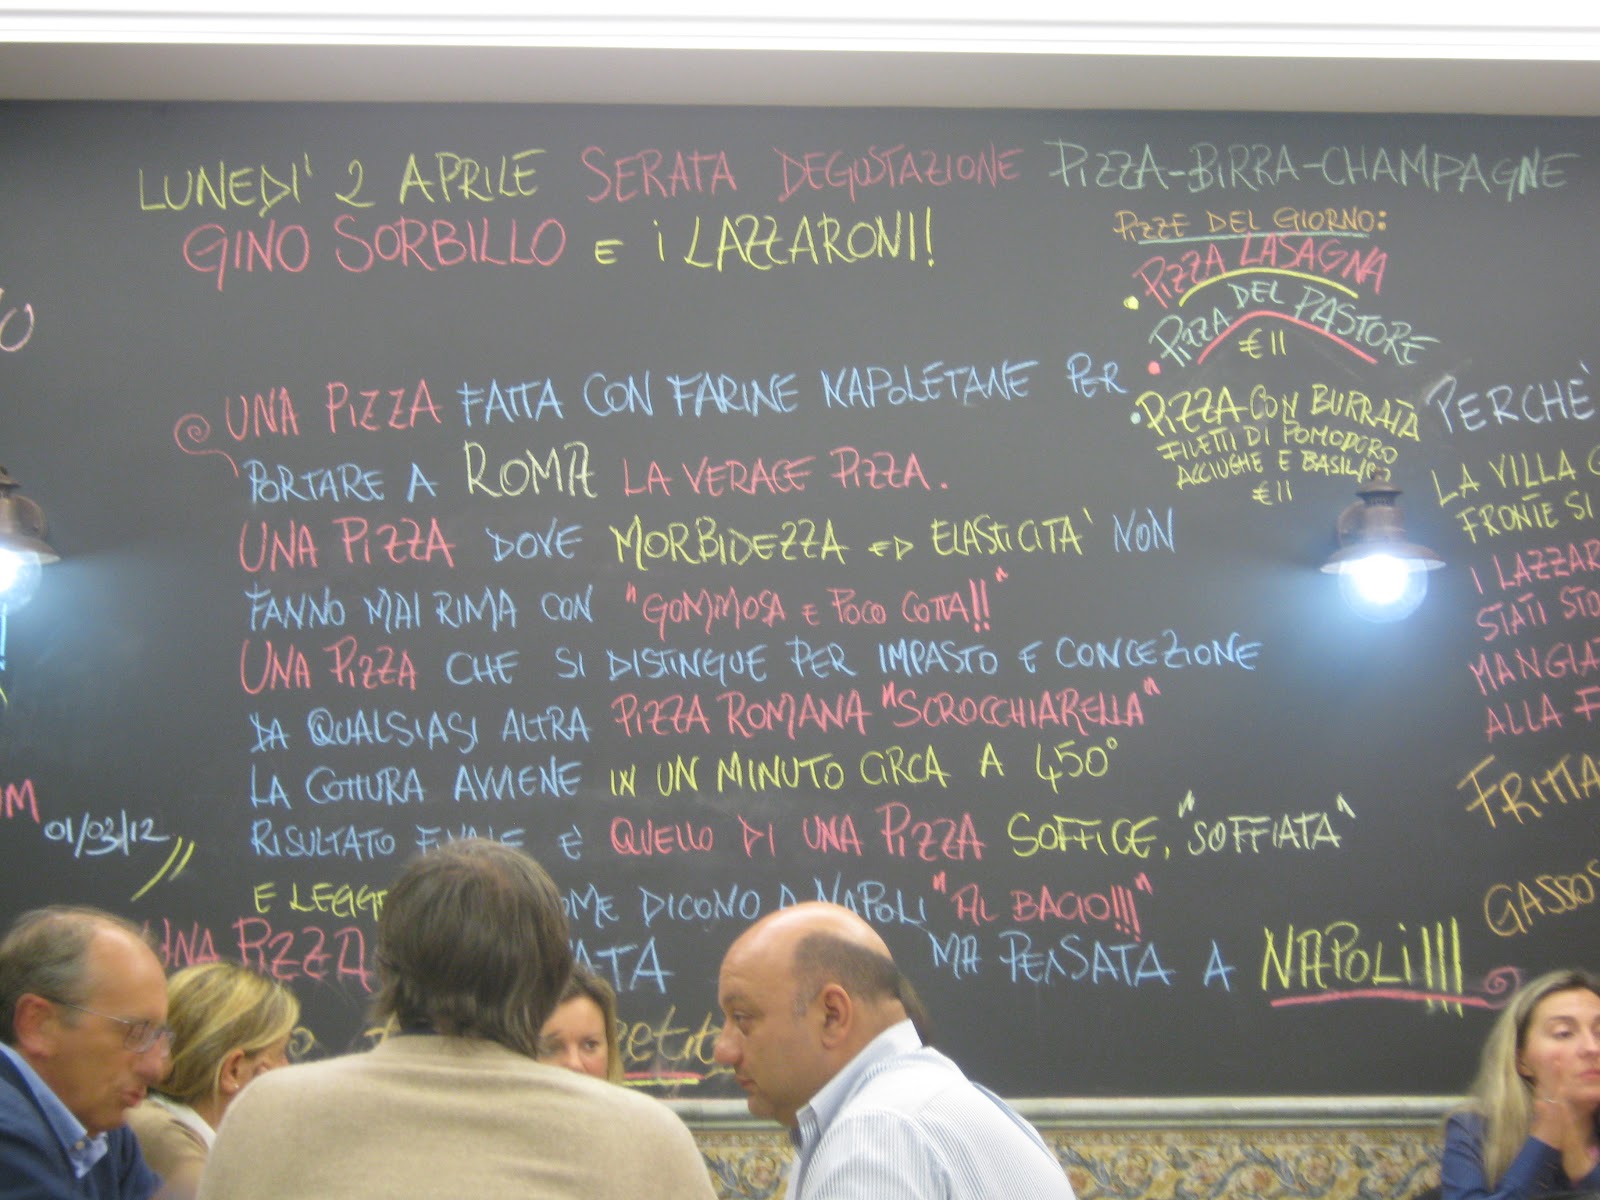 LUNEDI' 2 APRILE SERATA DEGUSTAZIONE PIZZA-BIRRA-CHAMPAGNE
GINO SORBILLO E I LAZZARONI!
PIZZE DEL GIORNO:
PIZZA LASAGNA
PIZZA DEL PASTORE
€ 11
PIZZA CON BURRATA
FILETTI DI POMODORO
ACCIUGHE E
€ 11
UNA PIZZA FATTA CON FARINE NAPOLETANE PER
PORTARE A ROMA LA VERACE PIZZA.
UNA PIZZA DOVE MORBIDEZZA ED ELASTICITA' NON
FANNO MAI RIMA CON "GOMMOSA E POCO COTTA!!"
UNA PIZZA CHE SI DISTINGUE PER IMPASTO E CONCEZIONE
DA QUALSIASI ALTRA PIZZA ROMANA "SCROCCHIARELLA"
LA COTTURA AVVIENE IN UN MINUTO CIRCA A 450°
RISULTATO FINALE È QUELLO DI UNA PIZZA SOFFICE, "SOFFIATA"
E LEGGE OME DICONO A NAPOLI "AL BACIO!!!"
UNA PIZZA ATA MA PENSATA A NAPOLI!!!
01/03/12
PERCHÈ
LA VILLA
FRONTE SI
I LAZZAR
STATI STO
MANGIA
ALLA F
FRITTA
GASSOS